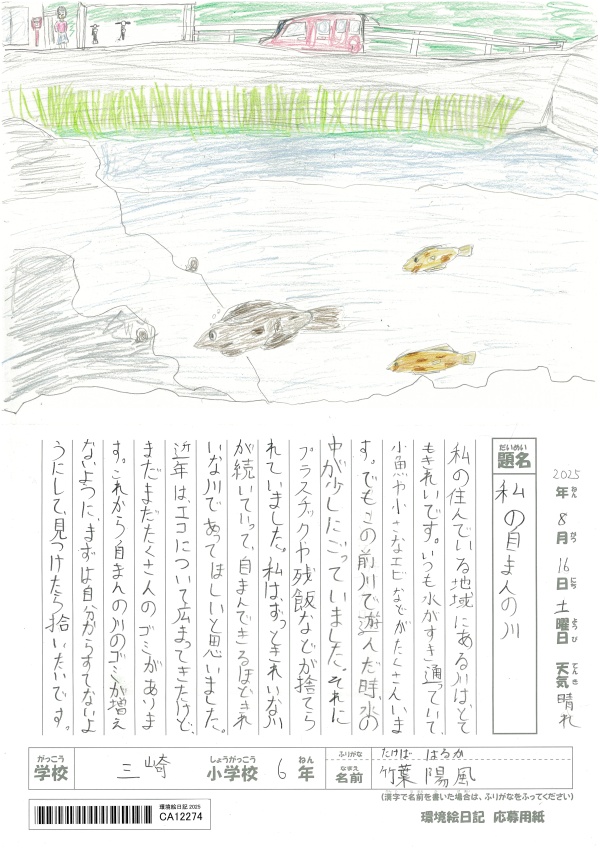 2025年ねん 8月がつ 16日にち 土曜日ようび 天気てんき 晴れ
題名だいめい 私の自まんの川
私の住んでいる地域にある川はとて
もきれいです。いつも水がすき通っていて、
小魚や小さなエビなどがたくさんいま
す。でもこの前川で遊んだ時、水の
中が少しにごっていました。それに
プラスチックや残飯などが捨てら
れていました。私は、ずっときれいな川
が続いていって、自まんできるほどきれ
いな川であってほしいと思いました。
近年は、エコについて広まってきたけど、
まだまだたくさんのゴミがありま
す。これから自まんの川のゴミが増え
ないように、まずは自分からすてないよ
うにして、見つけたら拾いたいです。
学校がっこう 三崎 小学校しょうがっこう 6年ねん
ふりがな たけば はるか
名前なまえ 竹葉 陽風
(漢字で名前を書いた場合は、ふりがなをふってください)
環境絵日記 2025
CA12274
環境絵日記 応募用紙